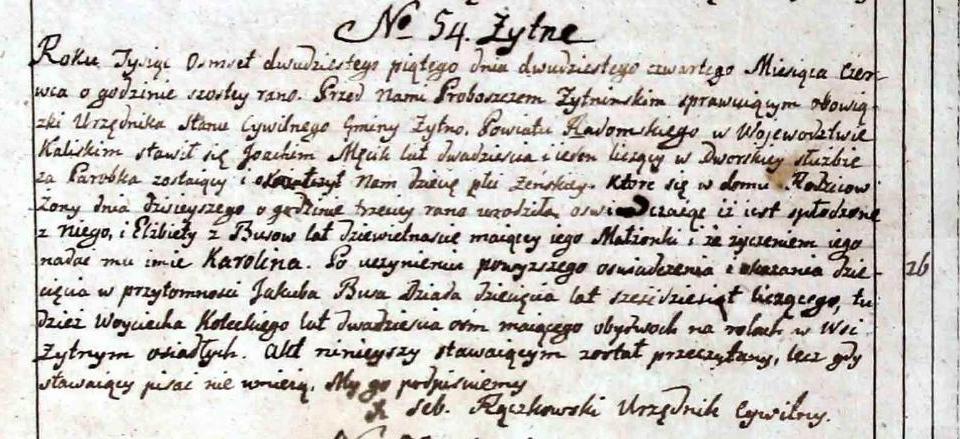 No 54. Żytne
Roku Tysiąc Osmset dwudziestego piątego dnia dwudziestego czwartego Miesiąca Czer-
wca o godzinie szostey rano. Przed Nami Proboszczem Zytninskim sprawuiącym obowią-
zki Urzędnika Stanu Cywilnego Gminy Zytno. Powiatu Radomskiego w Wojewodztwie
Kaliskim stawił się Joachim Męcik lat dwadziescia i ieden liczący w Dworskiey służbie
za Parobka zostaiący i okazał Nam dziecię płci żeńskiey. ktore się w domu Rodzicow
Żony dnia dzisieyszego o godzinie trzeciey rano urodziło, oswiadczaiąc iż iest spłodzone
z niego, i Elżbiety z Busow lat dziewietnascie maiącey iego Małżonki i że życzeniem iego
nadać mu imie Karolina. Po uczynieniu powyższego oswiadczenia i okazania dzie-
cięcia w przytomności Jakuba Busa Dziada dziecięcia lat sześćdziesiąt liczącego, tu
dzież Woyciecha Koteckiego lat dwadziescia ośm maiącego obydwoch na rolach w Wsi
Żytnym osiadłych. Akt ninieyszy stawaiącym został przeczytany, lecz gdy
stawaiący pisać nie umieią, My go podpisuiemy
X Seb. Rączkowski Urzędnik Cywilny.
26